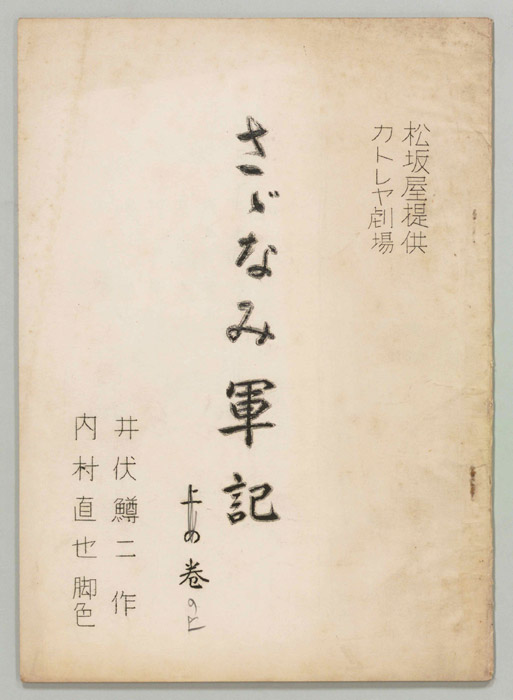 松坂屋提供
カトレヤ劇場
さゞなみ軍記
上の巻
井伏鱒二 作
内村直也 脚色